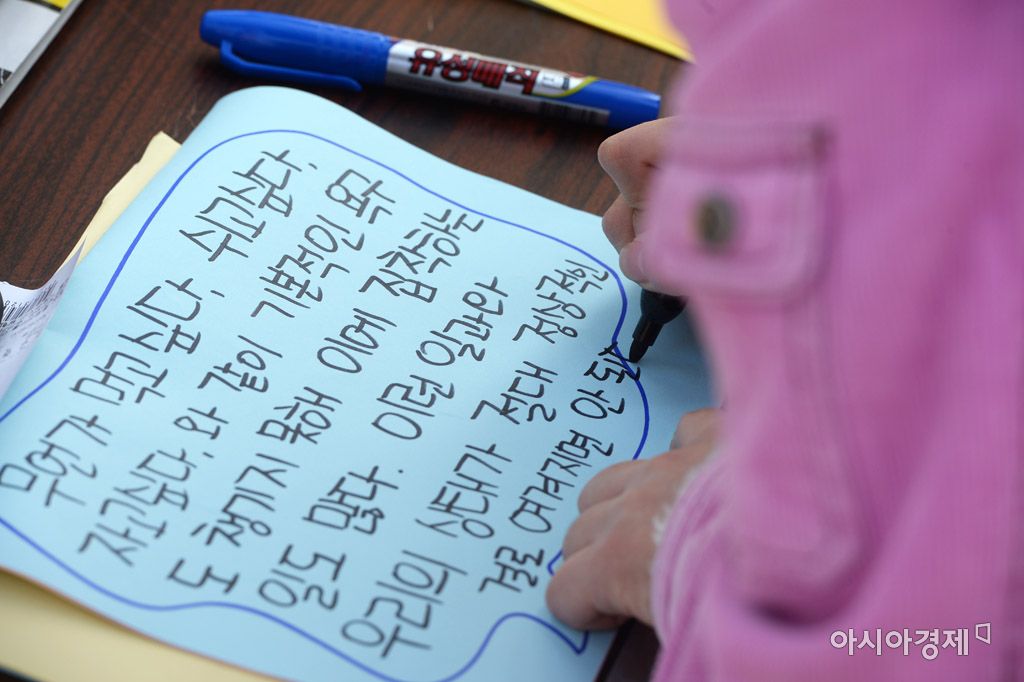 유성매직
무언가 먹고싶다. 쉬고싶다.
자고싶다.와 같이 기본적인 욕구
도 챙기지 못해 이에 집착하는
일도 많다. 이런 일과와
우리의 상태가 절대 정상적인
걸로 여겨지면 안
아시아경제